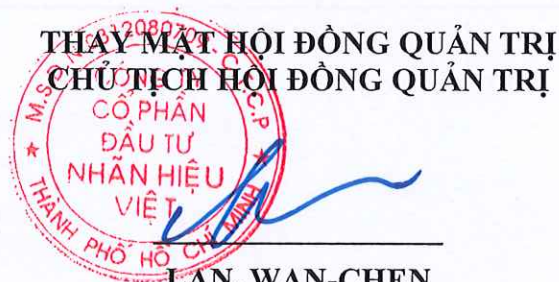 THAY MẶT HỘI ĐỒNG QUẢN TRỊ
CHỦ TỊCH HỘI ĐỒNG QUẢN TRỊ
CỔ PHẦN
ĐẦU TƯ
NHÃN HIỆU
VIỆT
THÀNH PHỐ HỒ CHÍ MINH
LAN, WAN-CHEN